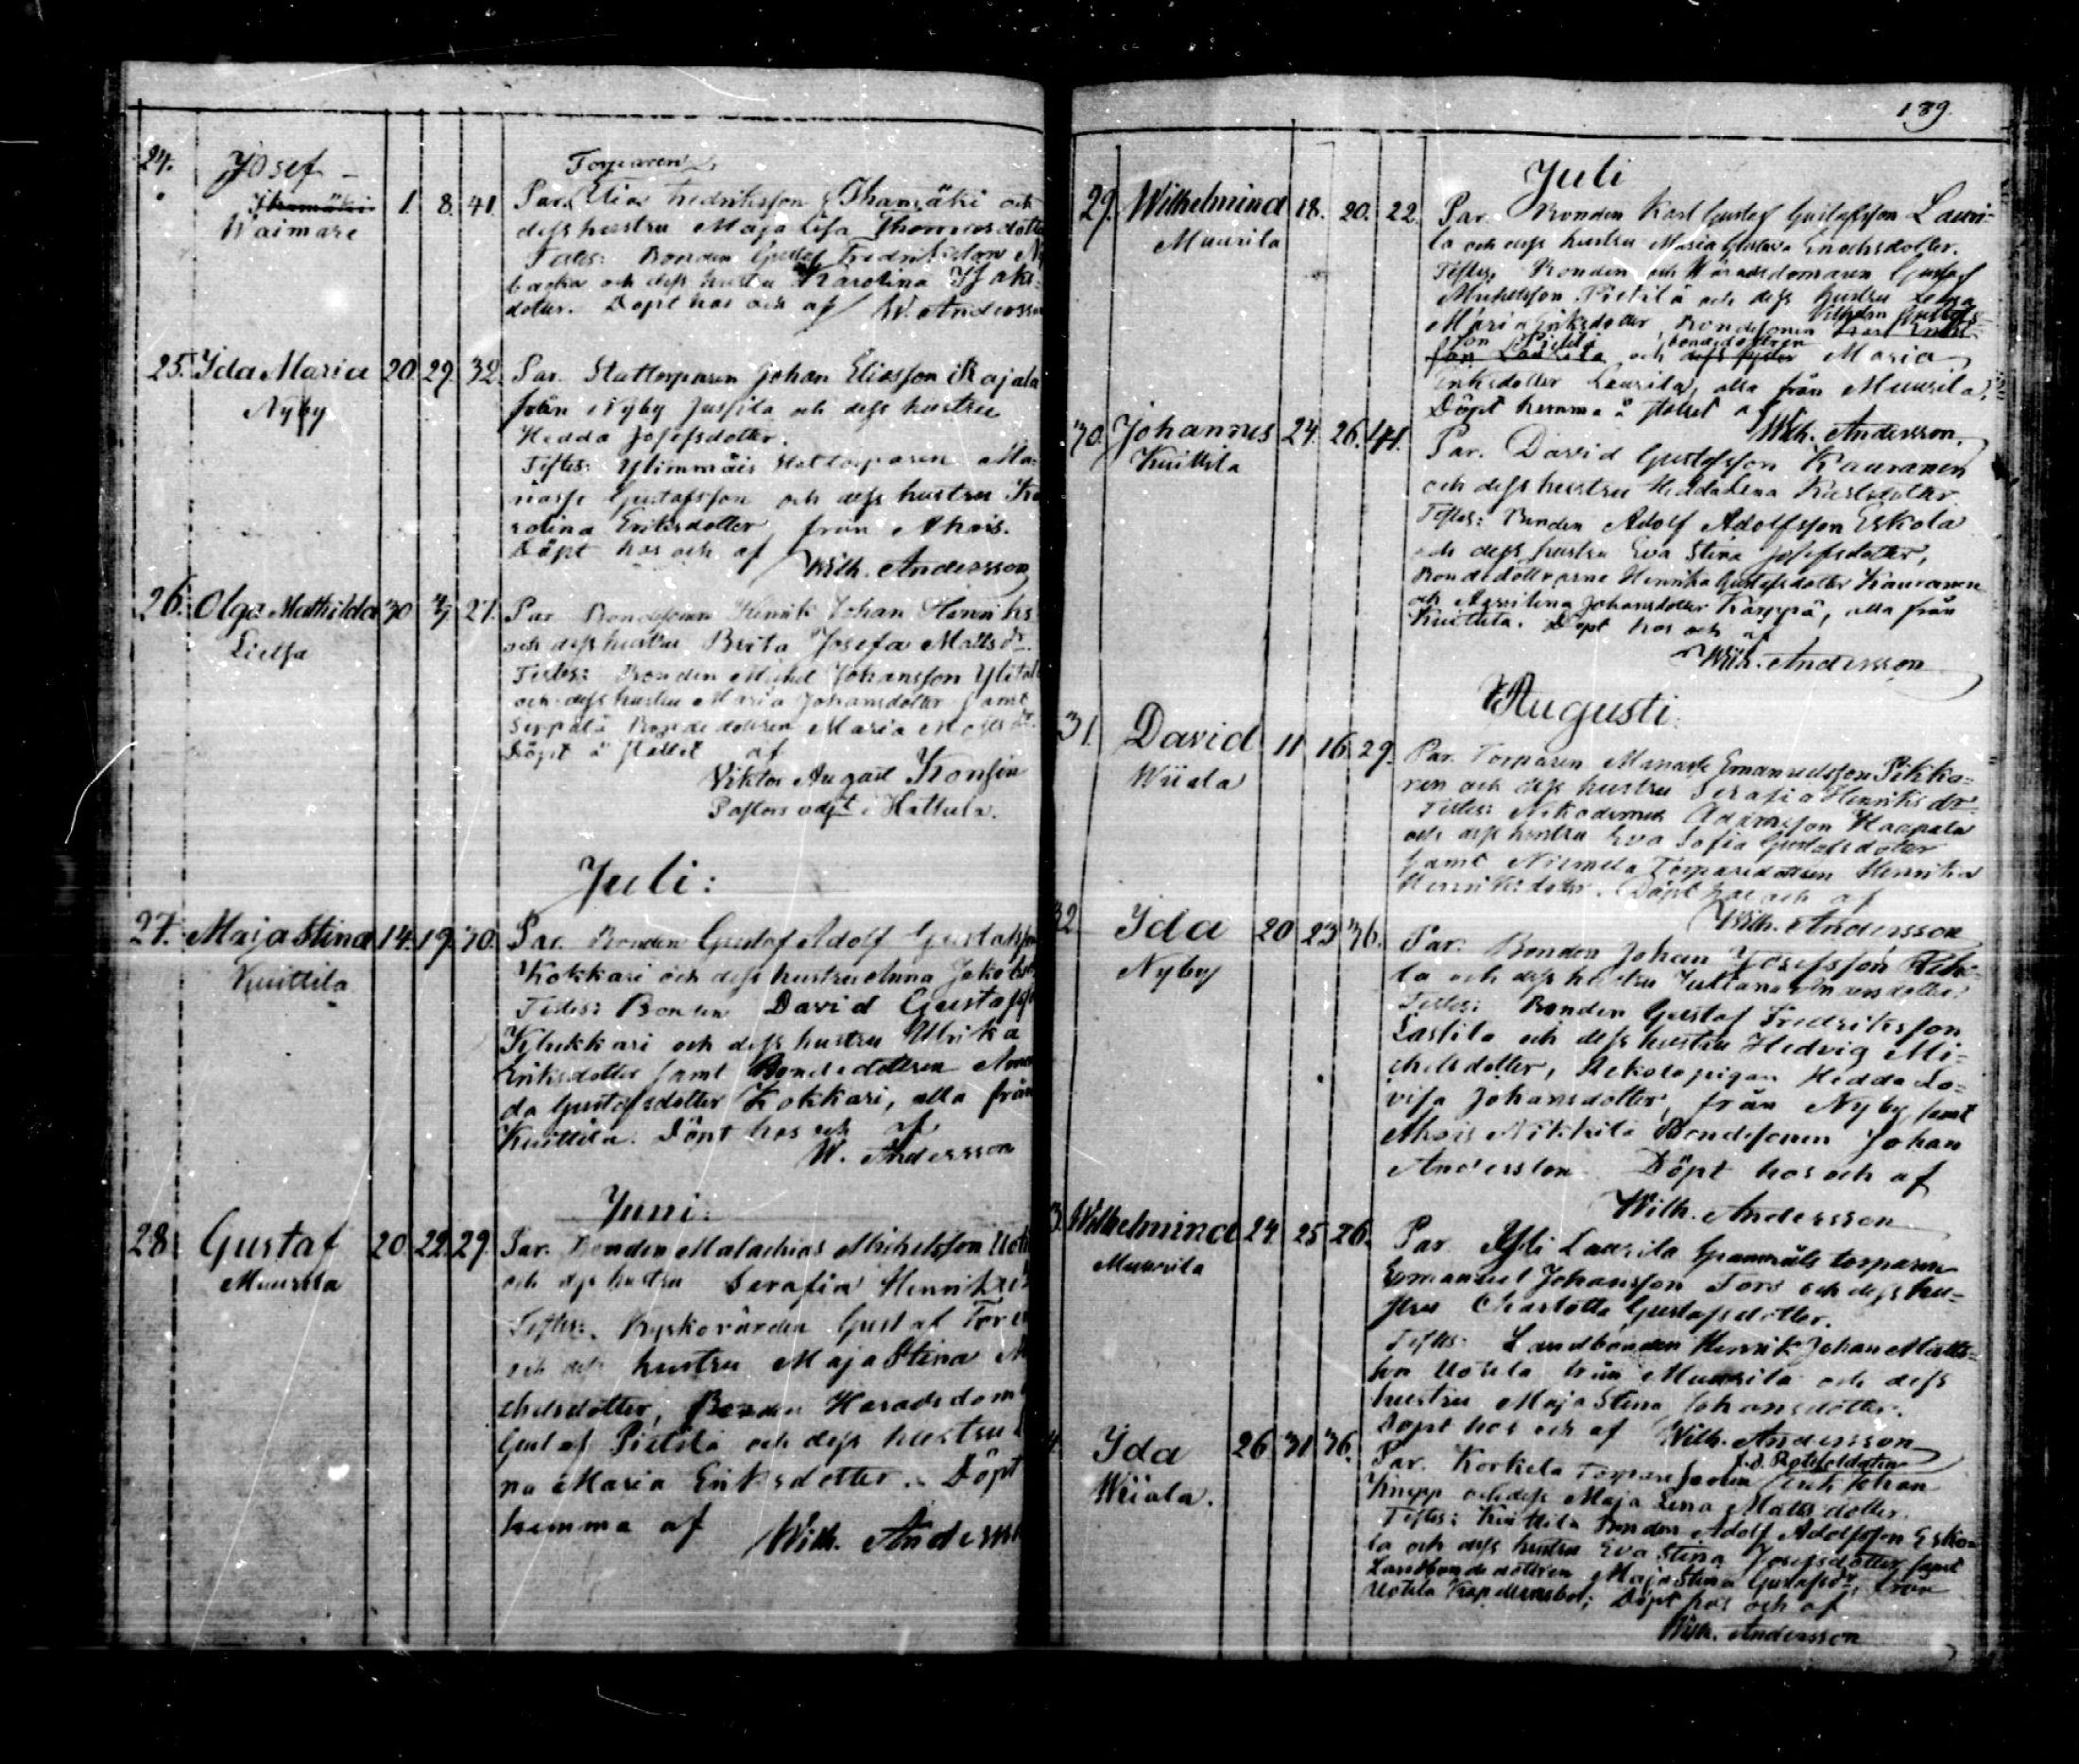 24. Josef 1. 8. 41. Torparen
Waimare
Par. Elias Fredriksson Ihamäki och
dess hustru Maja Lisa Thomasdotte
Testes: Bonden Gustaf Fredriksson
backa och dess hustru Karolina
dotter. Döpt hos och af W. Andersson
25. Ida Maria 20. 29. 32. Par. Stattorparen Johan Eliasson Rajala
Nyby
från Nyby Jussila och dess hustru
Hedda Josefsdotter.
Testes: Stattorparen Ma-
nasse Gustafsson och dess hustru Ka
rolina Eriksdotter från Ahois.
Döpt hos och af
Wilh. Andersson
26. Olga Mathilda 30 27. Par. Bondesonen Henrik Johan Henriks
Lielsa
och dess hustru Brita Josefa Matts dr.
Testes: Bonden Michel Johansson Ylital
och dess hustru Maria Johansdotter samt
Seppälä Bondedottren Maria Matts dr.
Döpt å stället af
Viktor August Konsin
Pastors adjt i Hattula.
Juli:
27. Maja Stina 14. 19. 30. Par. Bonden Gustaf Adolf Gustafsso
Kuittila
Kokkari och dess hustru Anna Jakobs
Testes: Bonden David Gustafss
Kylukkari och dess hustru Ulrika
Eriksdotter samt Bondedottren Aman
da Gustafsdotter Kokkari, alla från
Kuittila. Döpt hos och af
W. Andersson
Juni:
28. Gustaf 20. 22. 29. Par. Bonden Malachias Michelsson Uoti
Muurila
och dess hustru Serafia Henriks
Testes: Kyrkovärden Gustaf
och dess hustru Maja Stina Mi
chelsdotter, Bonden Häradsdom
Gustaf Pietilä och dess hustru
na Maria Eriksdotter. Döpt
hemma af Wilh. Anderss
189.
Juli
29. Wilhelmina 18. 20. 22. Par. Bonden Karl Gustaf Gustafsson Lauri-
Muurila
la och dess hustru Maria Gustava Enochsdotter.
Testes: Bonden och Häradsdomaren Gustaf
Michelsson Pietilä och dess hustru Lena
Maria Eriksdotter, Bondesonen Vilhelm Gustafs-
son Pietilä och bondedottren Maria
Eriksdotter Laurila, alla från Muurila.
Döpt hemma å stället af
Wilh. Andersson.
30. Johannes 24. 26. 41. Par. David Gustafsson Kauranen
Kuittila
och dess hustru Hedda Lena Karlsdotter
Testes: Bonden Adolf Adolfsson Eskola
och dess hustru Eva Stina Josefsdotter,
Bondedöttrarne Henrika Gustafsdotter Kauranen
och Johansdotter Karppä, alla från
Kuittila. Döpt hos och af
Wilh. Andersson
Augusti.
31. David 11 16. 29. Par. Torparen Manasse Emanuelsson Pikka-
Wiiala
ren och dess hustru Serafia Henriks dr
Testes: Nikodemus Adamsson Haapala
och dess hustru Eva Sofia Gustafsdotter
samt Niemelä Torparedottren Henrika
Henriksdotter. Döpt hos och af
Wilh. Andersson
32. Ida 20 23 36. Par. Bonden Johan Josefsson
Nyby
la och dess hustru Juliana Andersdotter.
Testes: Bonden Gustaf Fredriksson
Lassila och dess hustru Hedvig Mi-
chelsdotter, Rekolapigan Hedda Lo-
visa Johansdotter, från Nyby samt
Ahois Nikkilä Bondesonen Johan
Andersson. Döpt hos och af
Wilh. Andersson
3. Wilhelmina 24 25 26. Par. Yli Laurila torparen
Muurila
Emanuel Johansson Tors och dess hu-
stru Charlotta Gustafsdotter.
Testes: Landbonden Henrik Johan Matts-
son Uotila från Muurila och dess
hustru Maja Stina Johansdotter.
Döpt hos och af Wilh. Andersson
4. Ida 26 31 36. Par. Korkela Torparesonen f.d. Johan
Wiiala.
Knapp och dess Maja Lena Mattsdotter.
Testes: Kuittila Bonden Adolf Adolfsson Esko-
la och dess hustru Eva Stina Josefsdotter samt
Landbondedottren Maja Stina Gustafsdr, från
Uotila Döpt hos och af
Wilh. Andersson